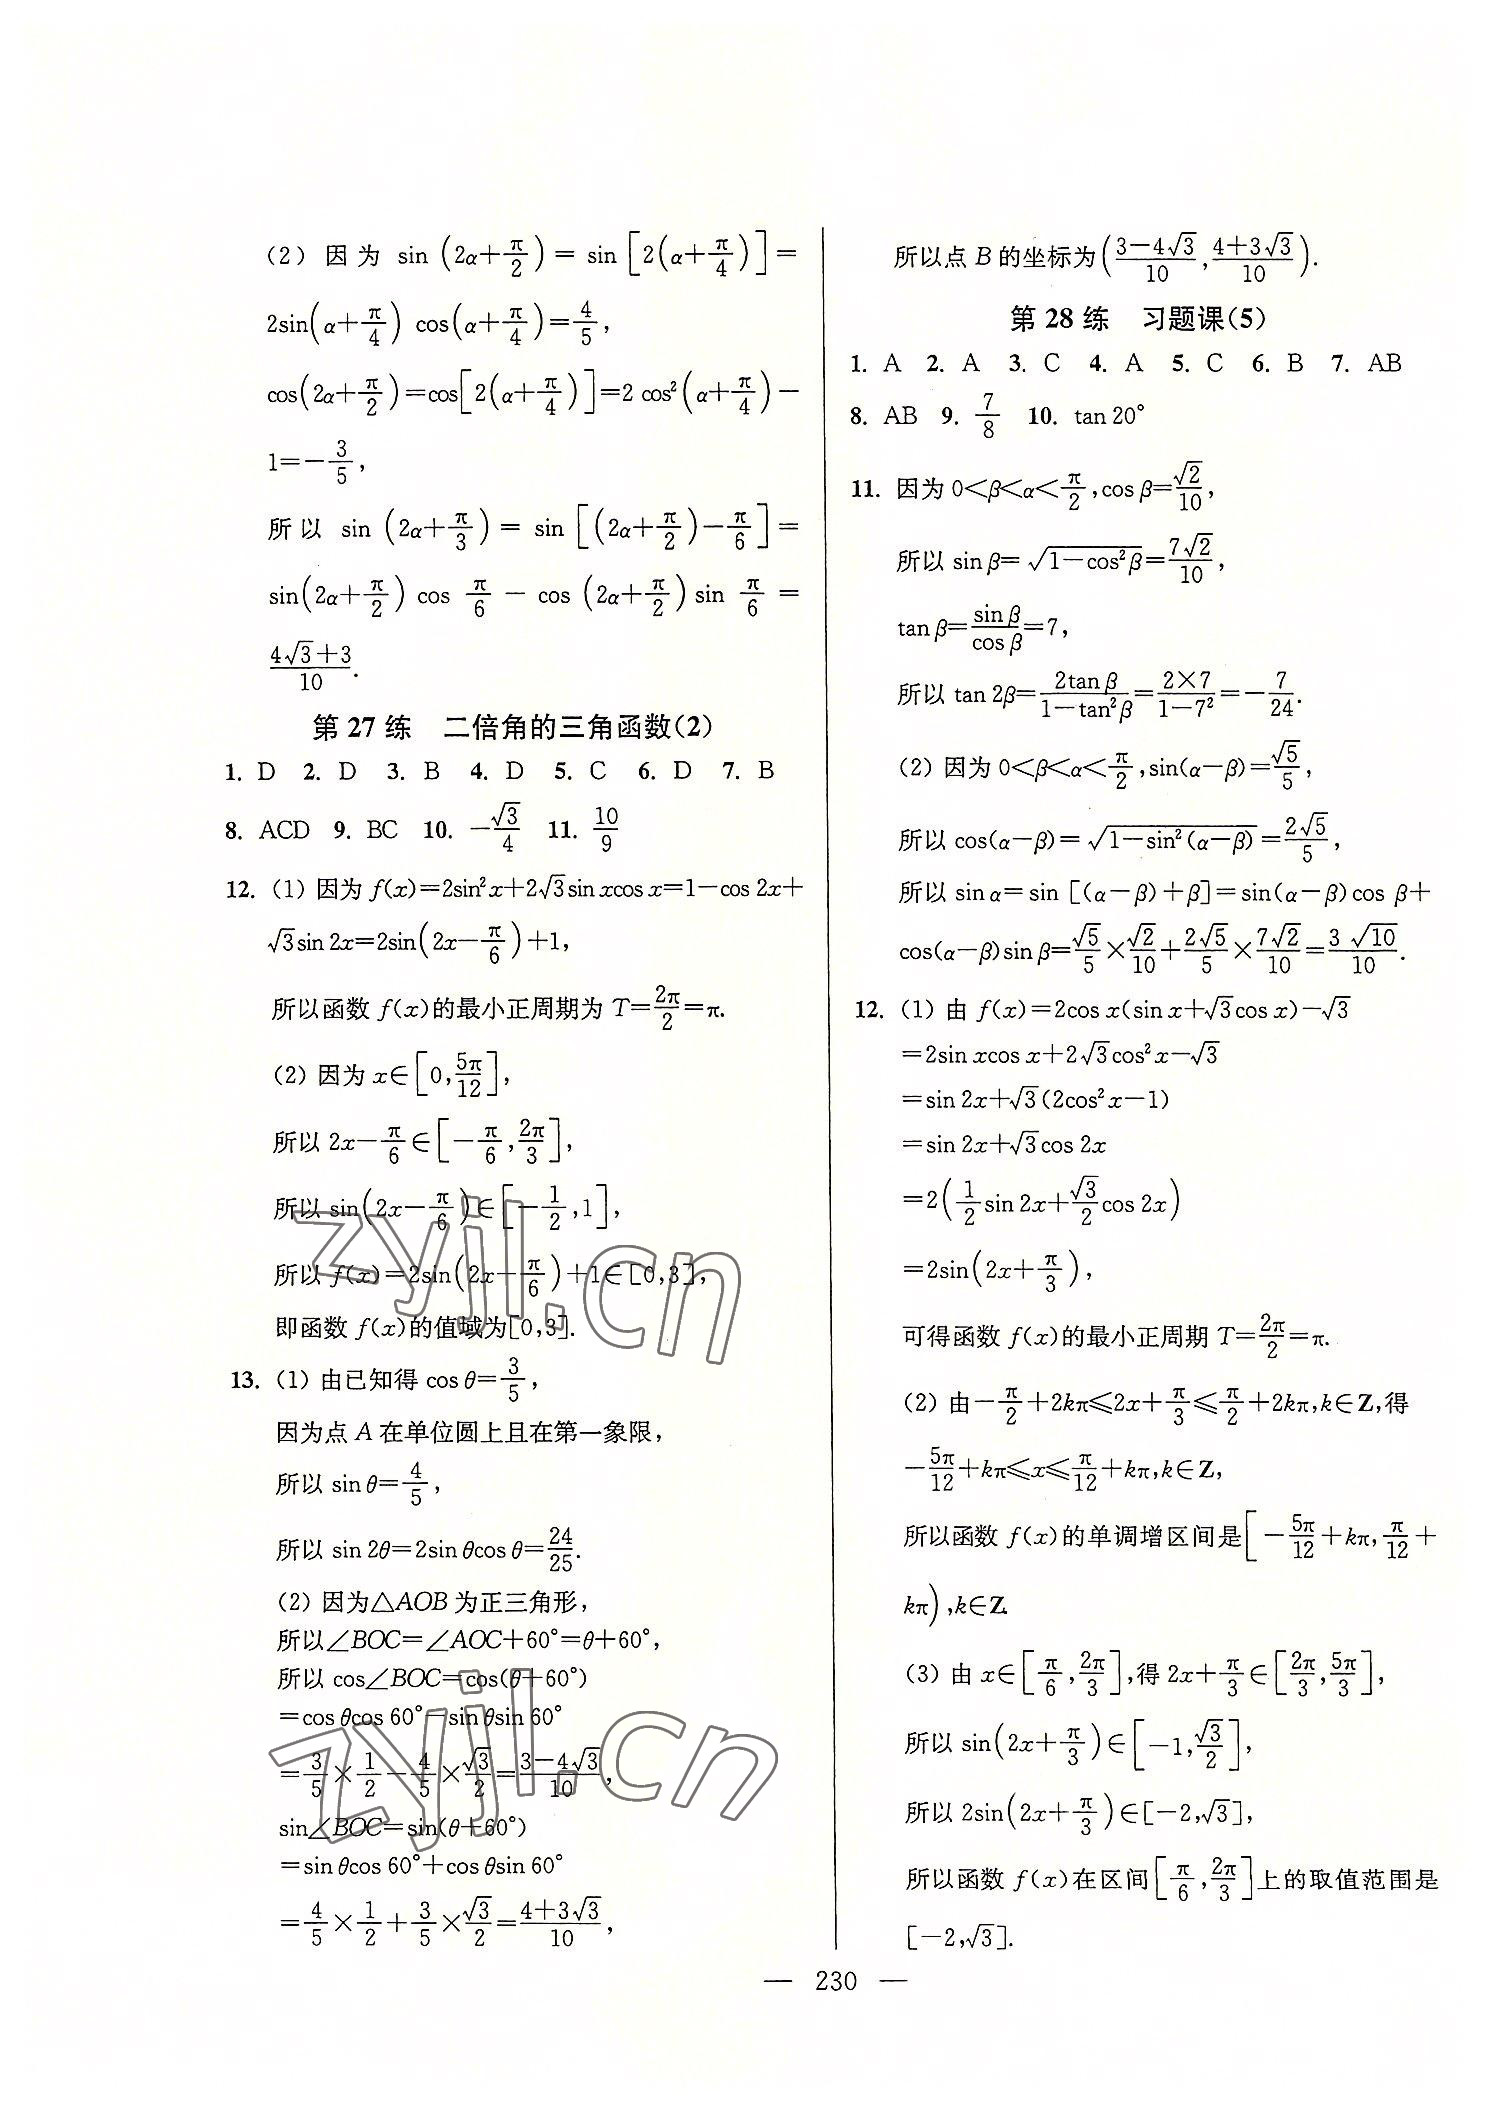 (2) 因为 sin(2α+π/2)=sin[2(α+π/4)]=
2sin(α+π/4) cos(α+π/4)=4/5,
cos(2α+π/2)=cos[2(α+π/4)]=2 cos²(α+π/4)-
1=-3/5,
所以 sin(2α+π/3)=sin[(2α+π/2)-π/6]=
sin(2α+π/2) cos π/6 - cos(2α+π/2) sin π/6 =
(4√3+3)/10.
第 27 练 二倍角的三角函数(2)
1. D 2. D 3. B 4. D 5. C 6. D 7. B
8. ACD 9. BC 10. -√3/4 11. 10/9
12. (1) 因为 f(x)=2sin²x+2√3sin xcos x=1-cos 2x+
√3sin 2x=2sin(2x-π/6)+1,
所以函数 f(x)的最小正周期为 T=2π/2=π.
(2) 因为 x∈[0,5π/12],
所以 2x-π/6∈[-π/6,2π/3],
所以 sin(2x-π/6)∈[-1/2,1],
所以 f(x)=2sin(2x-π/6)+1∈[0,3],
即函数 f(x)的值域为[0,3].
13. (1) 由已知得 cos θ=3/5,
因为点 A 在单位圆上且在第一象限,
所以 sin θ=4/5,
所以 sin 2θ=2sin θcos θ=24/25.
(2) 因为△AOB 为正三角形,
所以∠BOC=∠AOC+60°=θ+60°,
所以 cos∠BOC=cos(θ+60°)
=cos θcos 60°-sin θsin 60°
=3/5×1/2-4/5×√3/2=(3-4√3)/10,
sin∠BOC=sin(θ+60°)
=sin θcos 60°+cos θsin 60°
=4/5×1/2+3/5×√3/2=(4+3√3)/10,
所以点 B 的坐标为((3-4√3)/10,(4+3√3)/10).
第 28 练 习题课(5)
1. A 2. A 3. C 4. A 5. C 6. B 7. AB
8. AB 9. 7/8 10. tan 20°
11. 因为 0<β<α<π/2,cos β=√2/10,
所以 sin β=√(1-cos²β)=7√2/10,
tan β=sin β/cos β=7,
所以 tan 2β=2tan β/(1-tan²β)=(2×7)/(1-7²)=-7/24.
(2) 因为 0<β<α<π/2,sin(α-β)=√5/5,
所以 cos(α-β)=√(1-sin²(α-β))=2√5/5,
所以 sin α=sin [(α-β)+β]=sin(α-β)cos β+
cos(α-β)sin β=√5/5×√2/10+2√5/5×7√2/10=3√10/10.
12. (1) 由 f(x)=2cos x(sin x+√3cos x)-√3
=2sin xcos x+2√3cos²x-√3
=sin 2x+√3(2cos²x-1)
=sin 2x+√3cos 2x
=2(1/2sin 2x+√3/2cos 2x)
=2sin(2x+π/3),
可得函数 f(x)的最小正周期 T=2π/2=π.
(2) 由-π/2+2kπ≤2x+π/3≤π/2+2kπ,k∈Z,得
-5π/12+kπ≤x≤π/12+kπ,k∈Z,
所以函数 f(x)的单调增区间是[-5π/12+kπ,π/12+
kπ),k∈Z
(3) 由 x∈[π/6,2π/3],得 2x+π/3∈[2π/3,5π/3],
所以 sin(2x+π/3)∈[-1,√3/2],
所以 2sin(2x+π/3)∈[-2,√3],
所以函数 f(x)在区间[π/6,2π/3]上的取值范围是
[-2,√3].
— 230 —
zyjl.cn
zyjl.cn